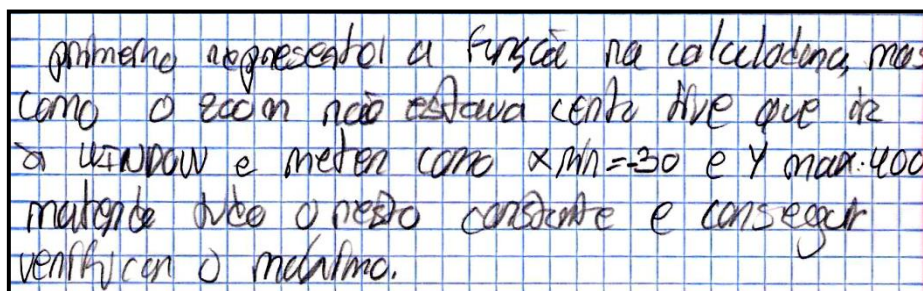 primeiro representei a função na calculadora, mas
como o zoom não estava certo tive que ir
à WINDOW e meter como x min=-30 e Y max:400
mantendo tudo o resto constante e consegui
verificar o máximo.